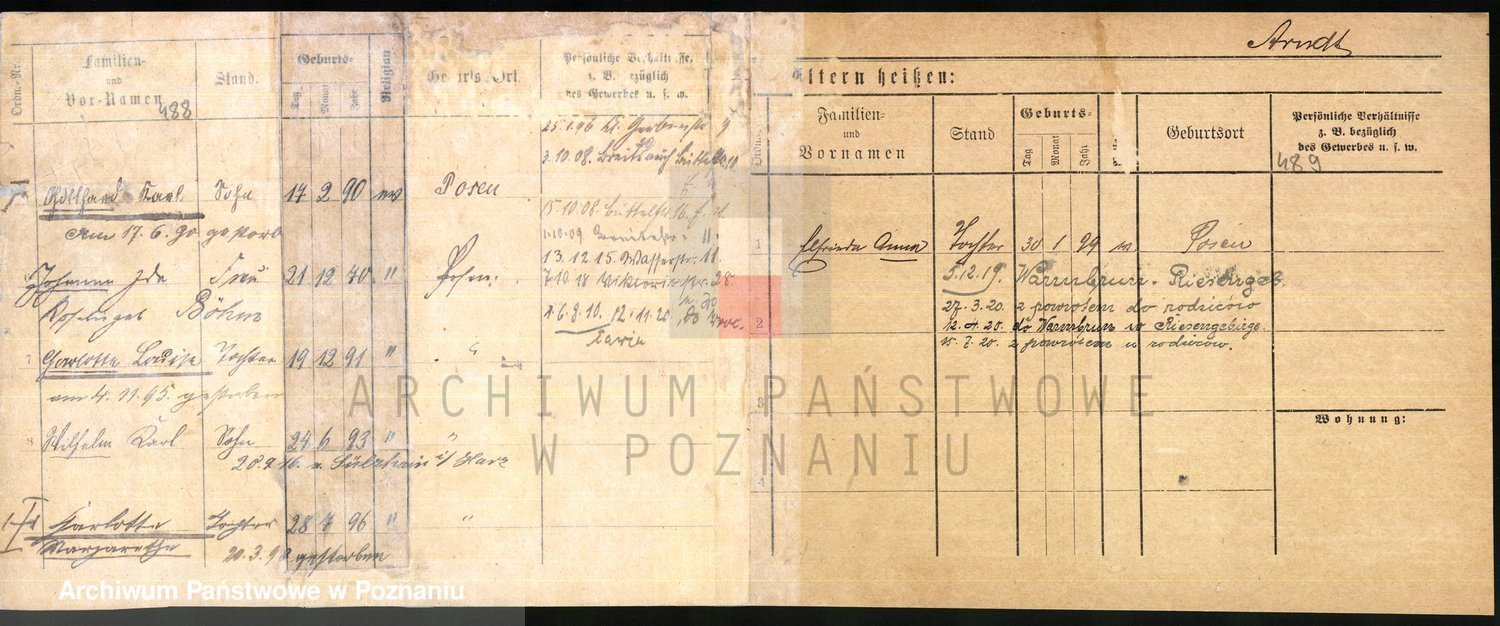 Arndt
Ordn.-Nr.
Familien-
und
Vor-Namen
488
Stand.
Geburts-
Tag
Monat
Jahr
Religion
Geburts-Ort.
Persönliche Verhältnisse,
z. B. bezüglich
des Gewerbes u. s. w.
25.1.96 kl. Gerberstr 9
3.10.08. Breite
Karl Sohn 17 2 90 ev Posen
Am 17.6.90 gestorb
15.10.08. Büttelstr 16
1.10.09 Breitestr. 11.
13.12.15 Wasserstr. 11.
7.10.18 Viktoriastr. 28
Johanna Ida Frau 21 12 70 "
Böhm
1.6.8.10. 12.11.20
7 Charlotte Louise Tochter 19 12 91 " "
am 4.11.95. gestorben
8 Wilhelm Karl Sohn 24 6 93 " "
i/ Harz
Karlotte Tochter 28 7 96 " "
Margarethe 20.3.98 gestorben
Eltern heißen:
Ordn.
Familien-
und
Vornamen
Stand
Geburts-
Tag
Monat
Jahr
Geburtsort
Persönliche Verhältnisse
z. B. bezüglich
des Gewerbes u. s. w.
489
1 Elfrieda Anna Tochter 30 1 99 Posen
5.12.19. Warmbrun. Riesengeb.
27.3.20. z powrotem do rodziców
2 12.4.20. do Warmbrun w Riesengebirge.
15.7.20. z powrotem u rodziców.
3
Wohnung:
4
ARCHIWUM PAŃSTWOWE
W POZNANIU
Archiwum Państwowe w Poznaniu